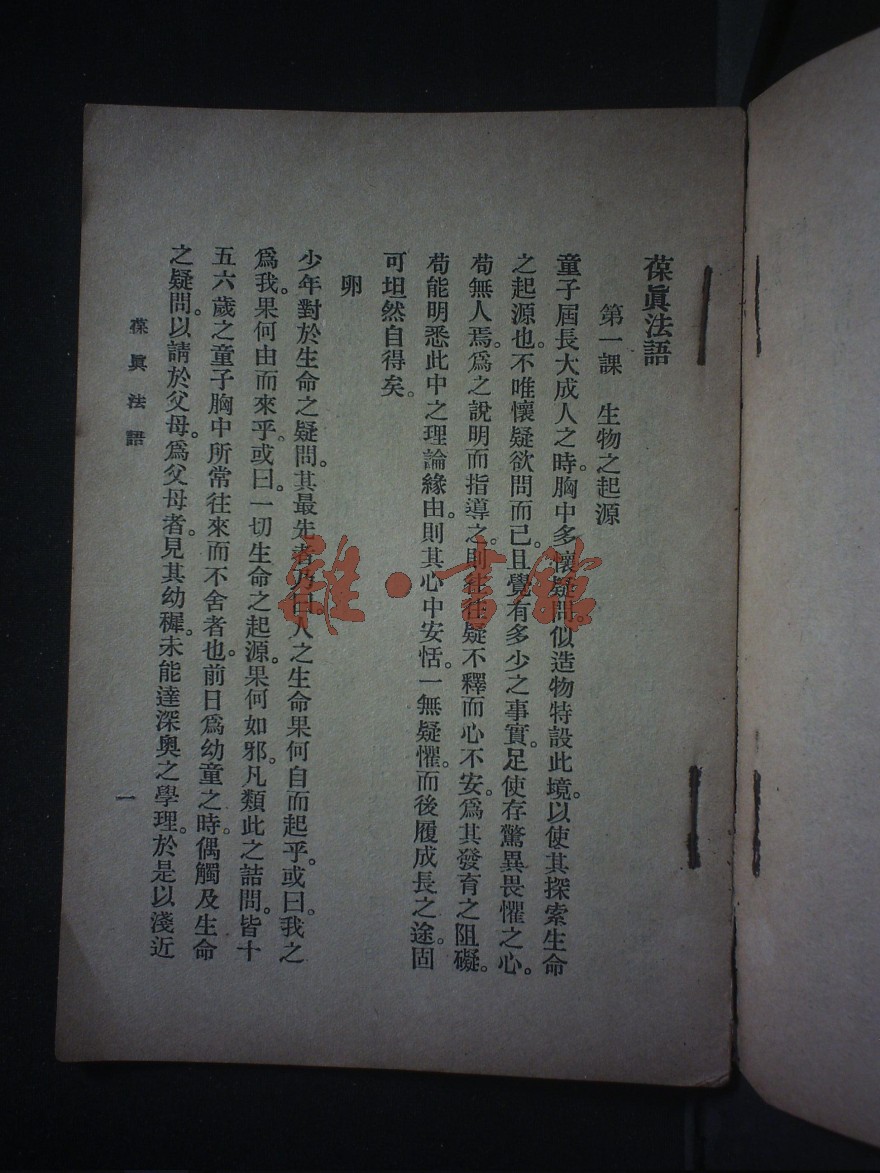 葆眞法語
第一課　生物之起源
童子屆長大成人之時。胸中多懷疑問。似造物特設此境。以使其探索生命
之起源也。不唯懷疑欲問而已。且覺有多少之事實。足使存驚異畏懼之心。
苟無人焉。爲之說明而指導之。則往往疑不釋而心不安。爲其發育之阻礙。
苟能明悉此中之理論緣由。則其心中安恬。一無疑懼。而後履成長之途。固
可坦然自得矣。
卵
少年對於生命之疑問。其最先者乃曰人之生命果何自而起乎。或曰。我之
爲我。果何由而來乎。或曰。一切生命之起源。果何如邪。凡類此之詰問。皆十
五六歲之童子胸中所常往來而不舍者也。前日爲幼童之時。偶觸及生命
之疑問。以請於父母。爲父母者。見其幼穉。未能達深奧之學理。於是以淺近
葆眞法語
一
雜·書館